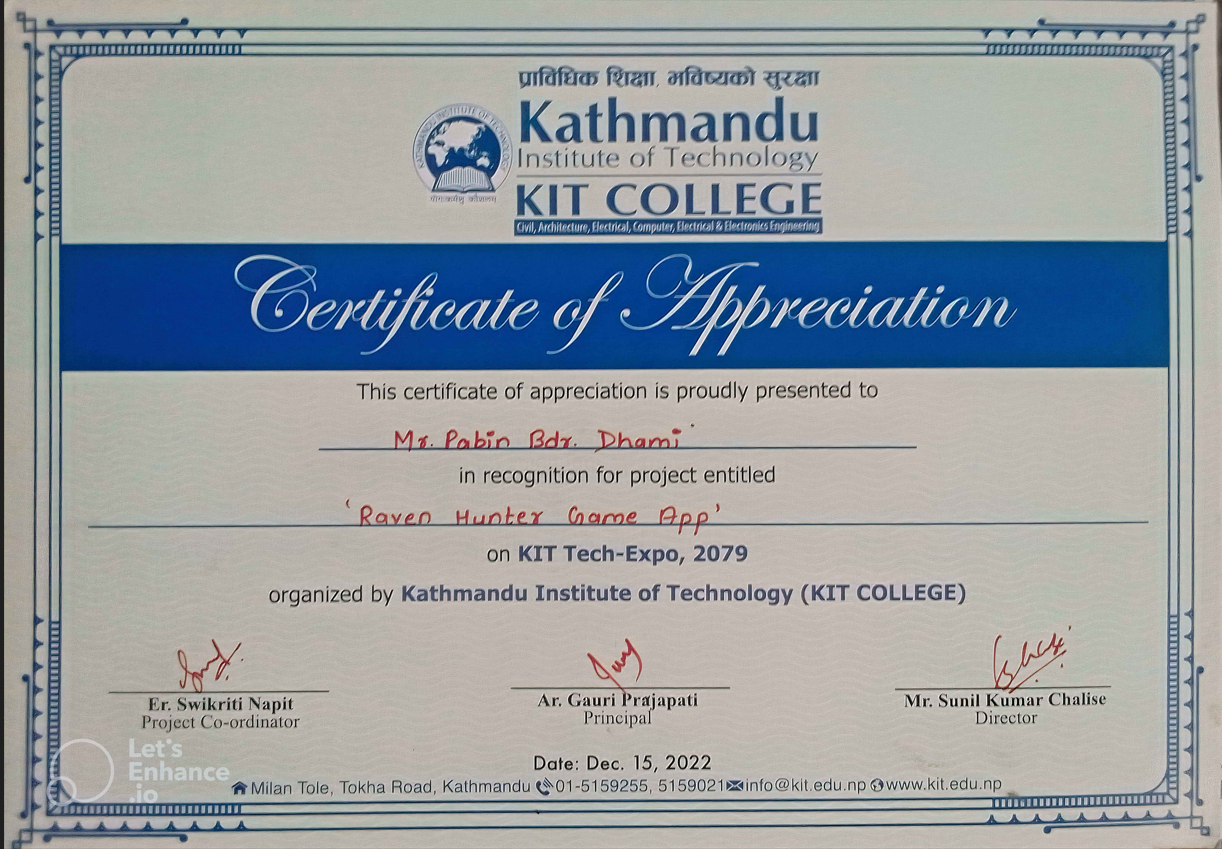 प्राविधिक शिक्षा, भविष्यको सुरक्षा
KATHMANDU INSTITUTE OF TECHNOLOGY
योगःकर्मशु कौशलम्
Kathmandu
Institute of Technology
KIT COLLEGE
Civil, Architecture, Electrical, Computer, Electrical & Electronics Engineering
Certificate of Appreciation
This certificate of appreciation is proudly presented to
Mr. Pabin Bdr. Dhami
in recognition for project entitled
'Raven Hunter Game App'
on KIT Tech-Expo, 2079
organized by Kathmandu Institute of Technology (KIT COLLEGE)
Er. Swikriti Napit
Project Co-ordinator
Ar. Gauri Prajapati
Principal
Mr. Sunil Kumar Chalise
Director
Date: Dec. 15, 2022
Milan Tole, Tokha Road, Kathmandu 01-5159255, 5159021 info@kit.edu.np www.kit.edu.np
Let's
Enhance
.io